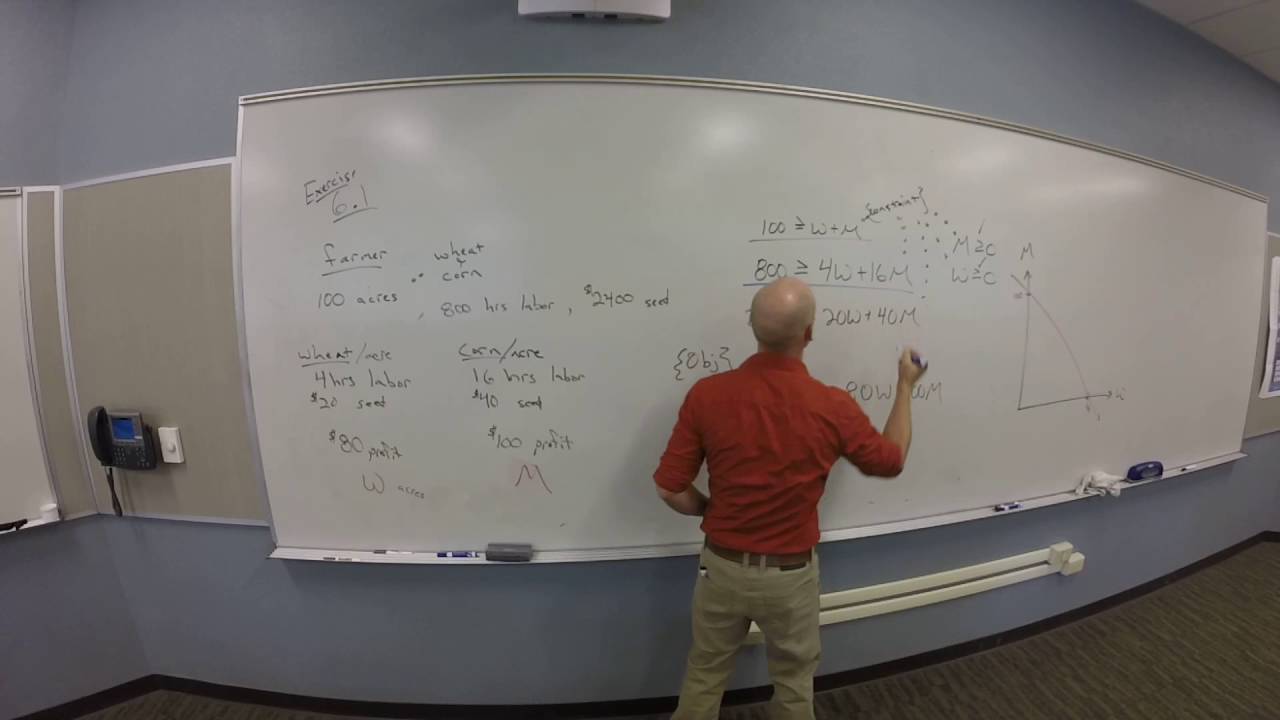 Exercise
6.1
farmer
wheat
corn
100 acres , 800 hrs labor , $2400 seed
wheat/acre
4 hrs labor
$20 seed
$80 profit
W acres
corn/acre
16 hrs labor
$40 seed
$100 profit
M
{constraint}
100 ≥ W+M
800 ≥ 4W+16M
20W+40M
M ≥ 0
W ≥ 0
{Obj}
80W
00M
M
W